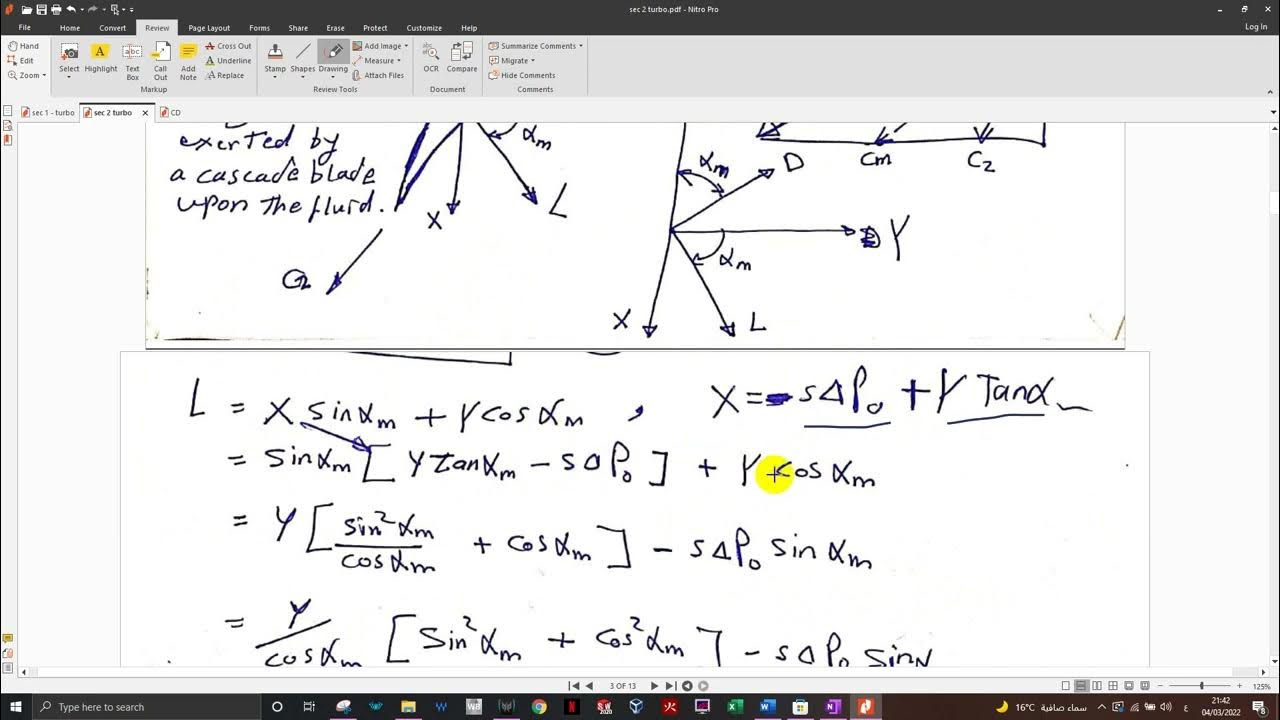 sec 2 turbo.pdf - Nitro Pro
File Home Convert Review Page Layout Forms Share Erase Protect Customize Help
Log In
Hand
Edit
Zoom
Select
Highlight
Text Box
Call Out
Add Note
Cross Out
Underline
Replace
Markup
Stamp
Shapes
Drawing
Add Image
Measure
Attach Files
Review Tools
OCR
Compare
Document
Summarize Comments
Migrate
Hide Comments
Comments
sec 1 - turbo sec 2 turbo CD
exerted by
a cascade blade
upon the fluid.
αm
L
X
αm
D
Cm
C2
Y
αm
X
L
L = X sinαm + Y cos αm , X = - sΔP₀ + Y Tanα
= sinαm [ Y tanαm - sΔP₀ ] + Y cos αm
= Y [ sin²αm / cosαm + cosαm ] - sΔP₀ sinαm
= Y / cosαm [ sin²αm + cos²αm ] - sΔP₀ sinα
3 OF 13
125%
Type here to search
16°C سماء صافية
ع
21:42
04/03/2022